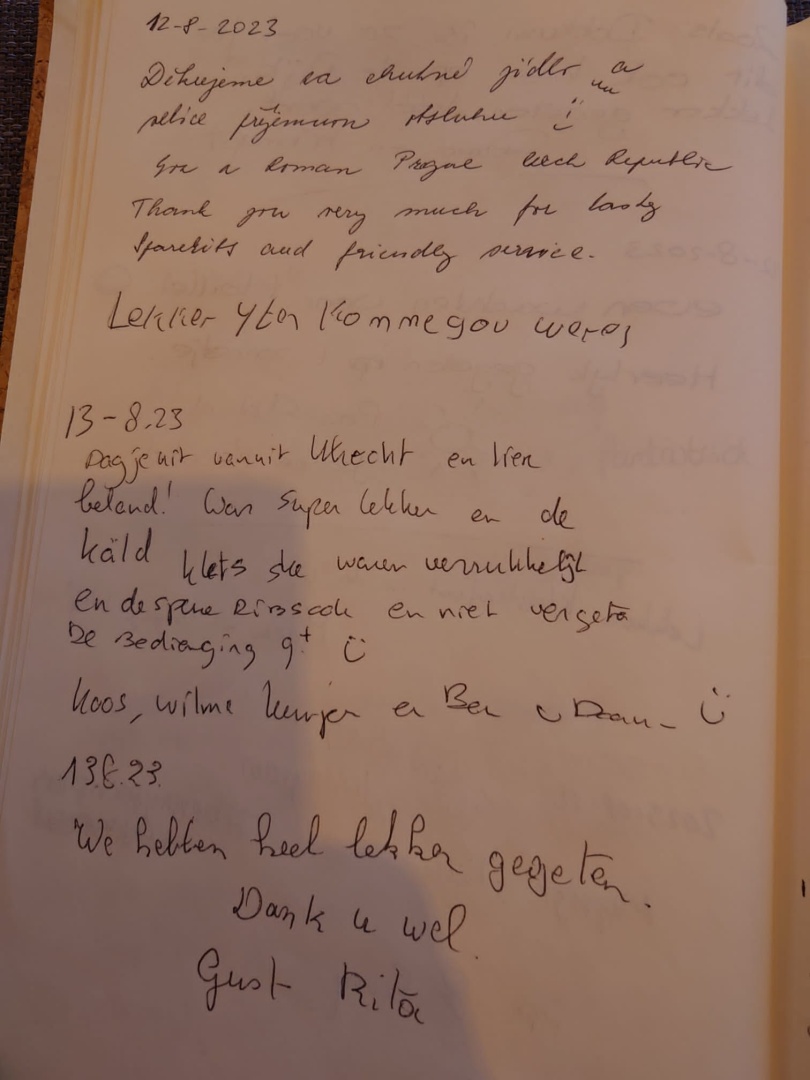 12-8-2023
Děkujeme za chutné jídlo a
velice příjemnou obsluhu
a Roman Prague Czech Republic
Thank you very much for tasty
Spareribs and friendly service.
Lekker Yten Komme gou weres
13-8.23
Dagje uit vanuit Utrecht en hier
beland! Was super lekker en de
käld klets ske waren verrukkelijk
en de spare Ribs ook en niet vergeta
De Bedienging 9+
Koos, Wilma en Ben
13.8.23.
We hebben heel lekker gegeten.
Dank u wel.
Gust Rita